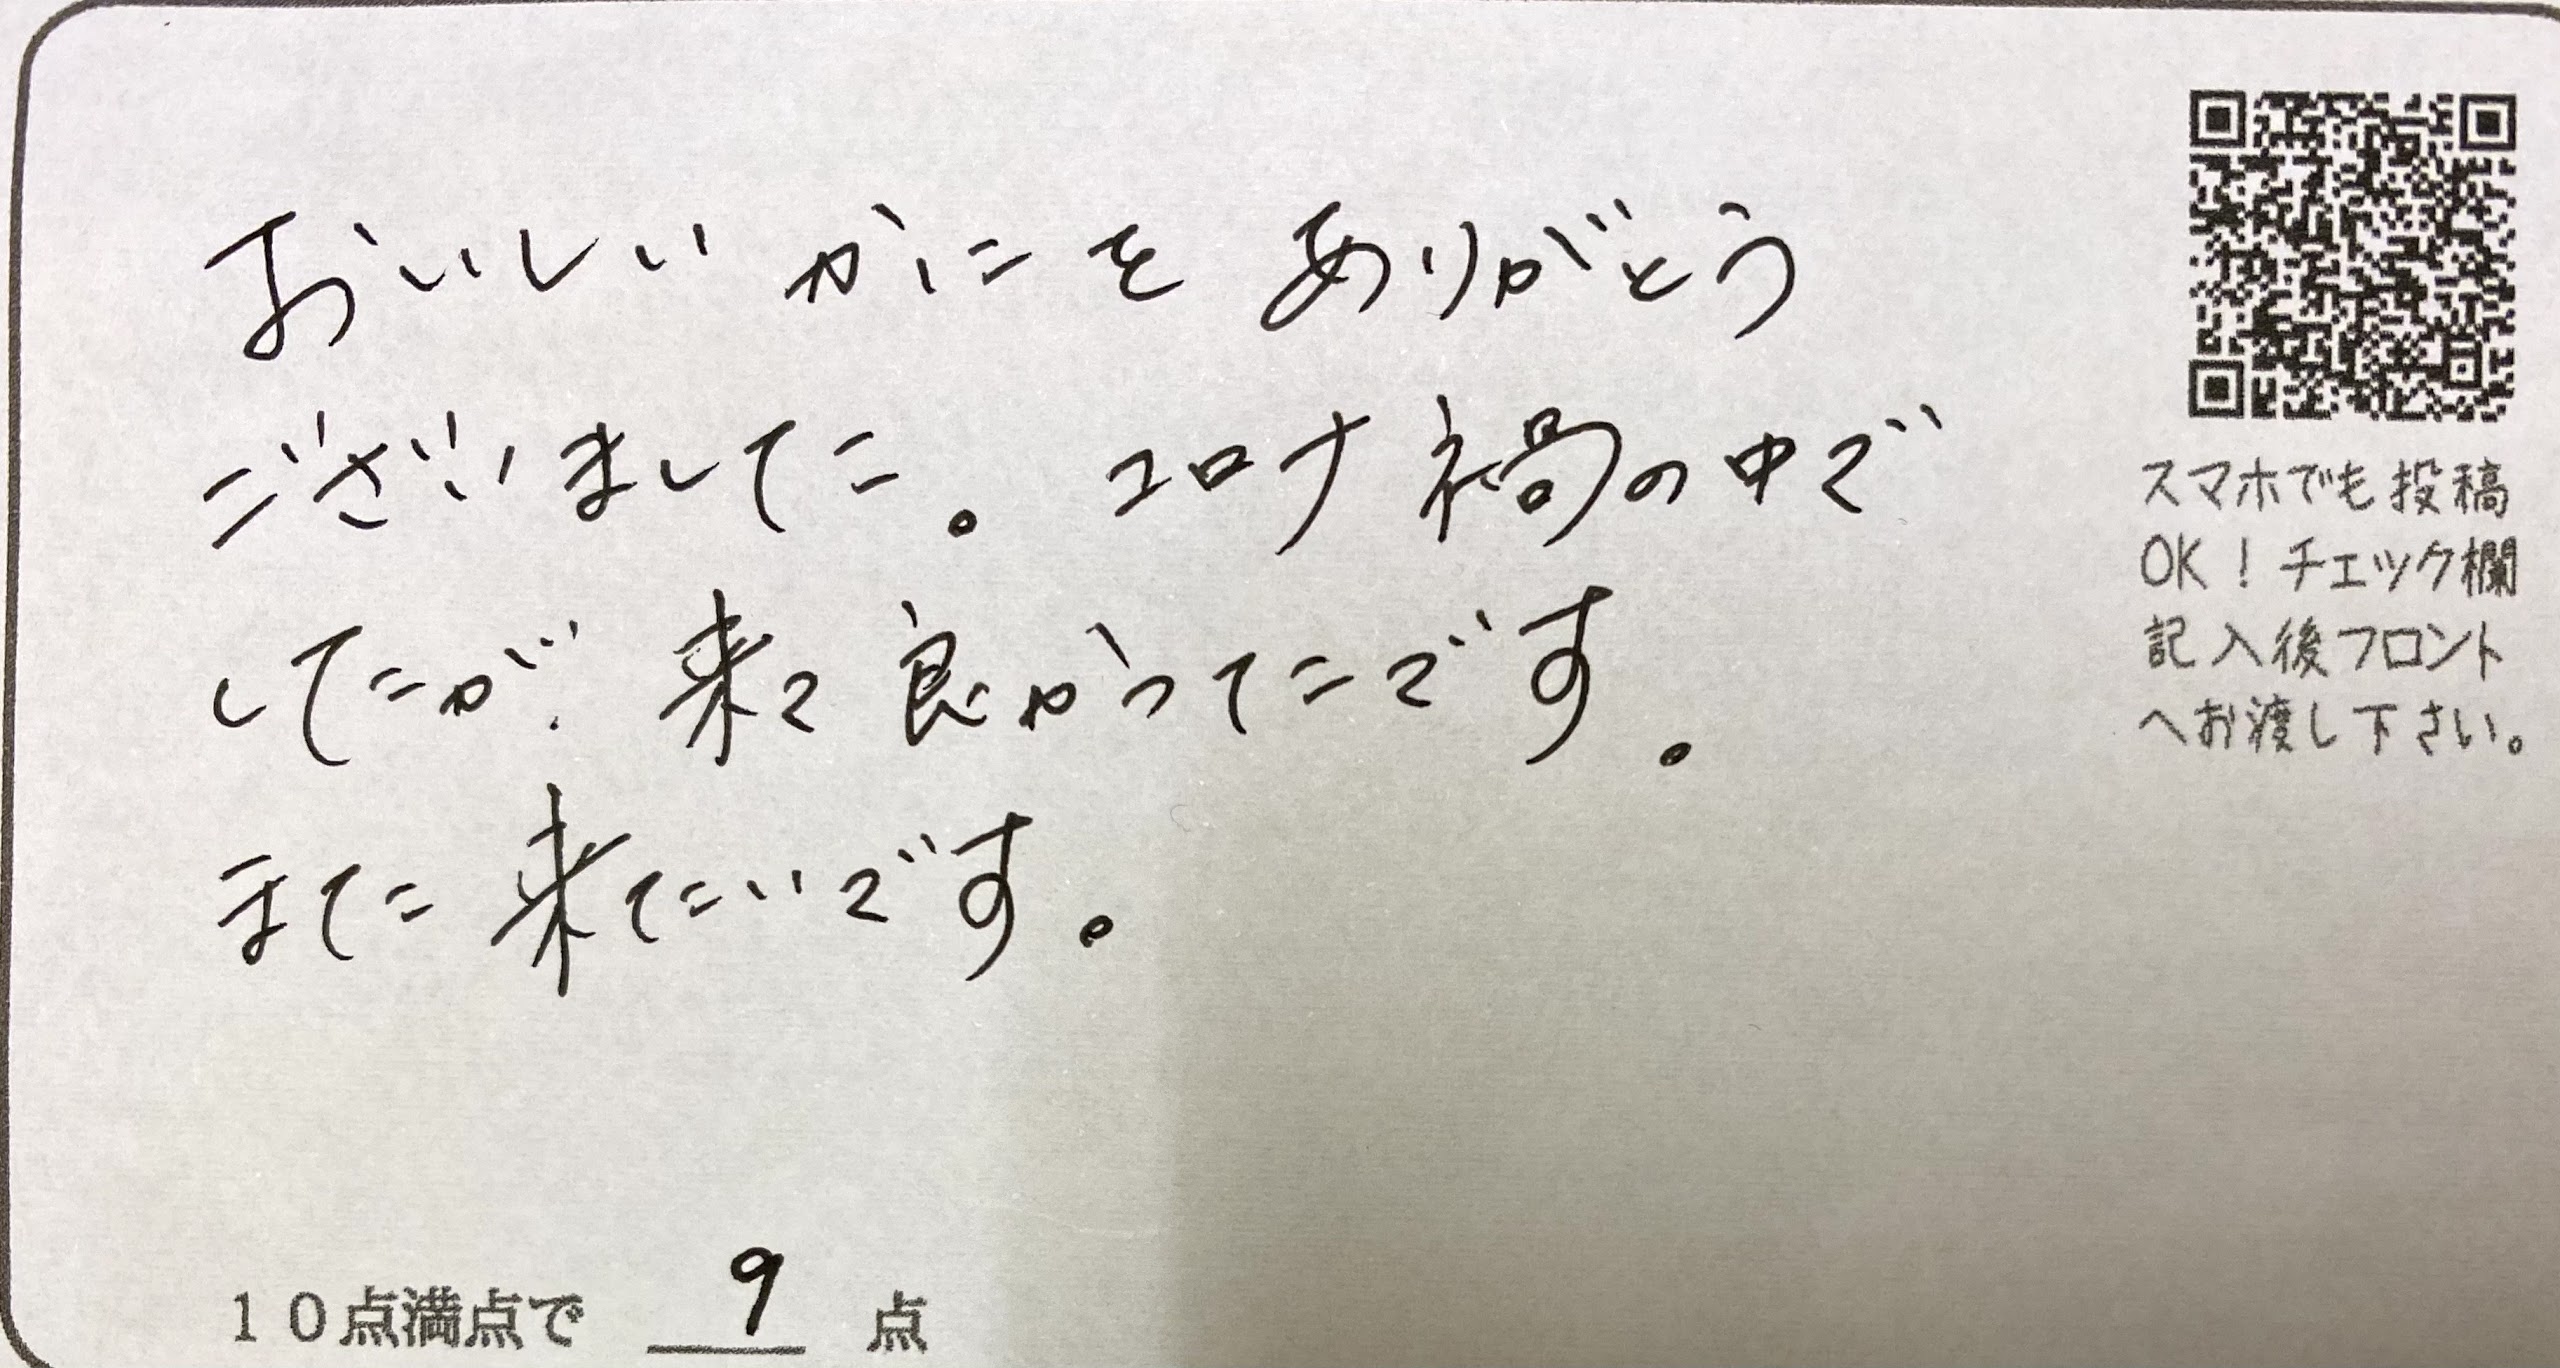 おいしいかにをありがとう
ございました。コロナ禍の中で
したが、来て良かったです。
また来たいです。
スマホでも投稿
OK！チェック欄
記入後フロント
へお渡し下さい。
10点満点で 9 点